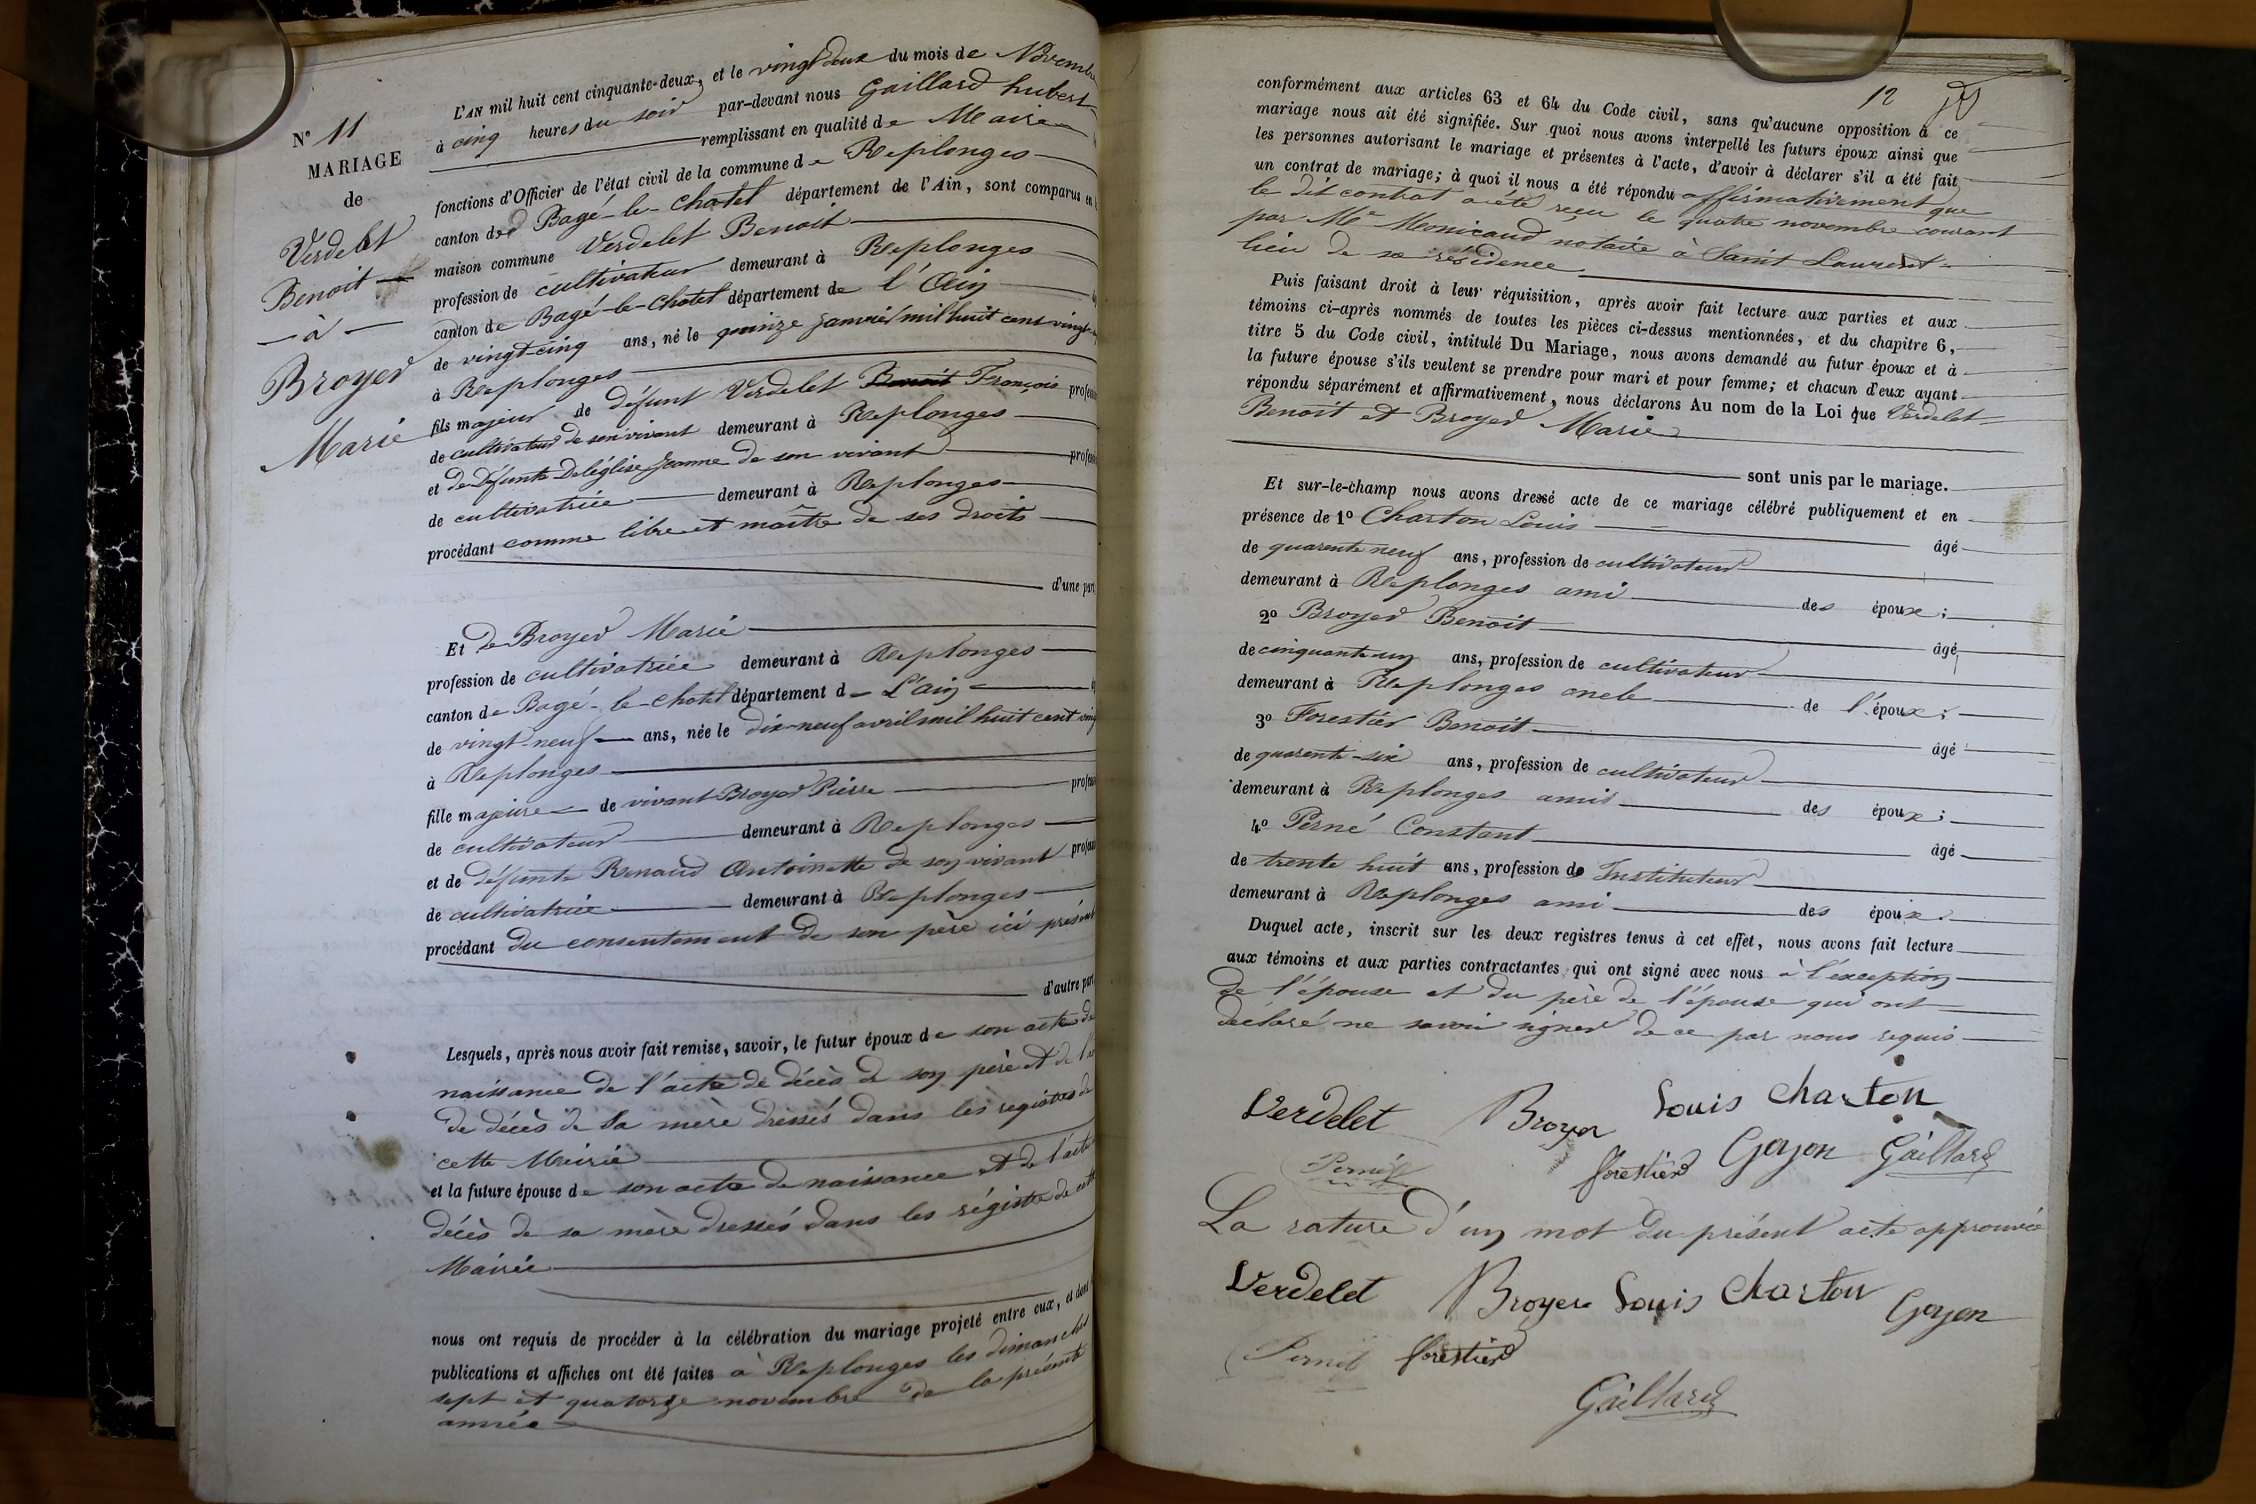 N° 11
MARIAGE
de
Verdelet
Benoit
- à -
Broyer
Marie
L'AN mil huit cent cinquante-deux, et le vingt deux du mois de Novembre
à cinq heures du soir par-devant nous Gaillard hubert
remplissant en qualité de Maire
fonctions d'Officier de l'état civil de la commune de Replonges
canton de Bagé-le-Chatel département de l'Ain, sont comparus en
maison commune Verdelet Benoit
profession de cultivateur demeurant à Replonges
canton de Bagé-le-Chatel département de l'Ain
de vingt-cinq ans, né le quinze janvier mil huit cent vingt
à Replonges
fils majeur de défunt Verdelet Benoit François
de cultivateur de son vivant demeurant à Replonges
et de Défunte Deléglise Jeanne de son vivant
de cultivatrice demeurant à Replonges
procédant comme libre et maître de ses droits
d'une part
Et de Broyer Marie
profession de cultivatrice demeurant à Replonges
canton de Bagé-le-Chatel département d L'ain
de vingt-neuf ans, née le dix-neuf avril mil huit cent
à Replonges
fille majeure de vivant Broyer Pierre
de cultivateur demeurant à Replonges
et de défunte Renaud Antoinette de son vivant
de cultivatrice demeurant à Replonges
procédant du consentement de son père ici présent
d'autre part
Lesquels, après nous avoir fait remise, savoir, le futur époux de son acte de
naissance de l'acte de décès de son père et de
de décès de sa mère dressés dans les registres de
cette Mairie
et la future épouse de son acte de naissance et de l'acte
décès de sa mère dressés dans les régistre de cette
Mairie
nous ont requis de procéder à la célébration du mariage projeté entre eux, et dont
publications et affiches ont été faites à Replonges les dimanches
sept et quatorze novembre de la présente
année
12
conformément aux articles 63 et 64 du Code civil, sans qu'aucune opposition à ce
mariage nous ait été signifiée. Sur quoi nous avons interpellé les futurs époux ainsi que
les personnes autorisant le mariage et présentes à l'acte, d'avoir à déclarer s'il a été fait
un contrat de mariage; à quoi il nous a été répondu affirmativement que
le dit contrat a été reçu le quatre novembre courant
par Me Monicaud notaire à Saint Laurent
lieu de sa résidence
Puis faisant droit à leur réquisition, après avoir fait lecture aux parties et aux
témoins ci-après nommés de toutes les pièces ci-dessus mentionnées, et du chapitre 6,
titre 5 du Code civil, intitulé Du Mariage, nous avons demandé au futur époux et à
la future épouse s'ils veulent se prendre pour mari et pour femme; et chacun d'eux ayant
répondu séparément et affirmativement, nous déclarons Au nom de la Loi que Verdelet
Benoit et Broyer Marie
sont unis par le mariage.
Et sur-le-champ nous avons dressé acte de ce mariage célébré publiquement et en
présence de 1° Charton Louis âgé
de quarente neuf ans, profession de cultivateur
demeurant à Replonges ami des époux;
2° Broyer Benoit âgé
de cinquante-un ans, profession de cultivateur
demeurant à Replonges oncle de l'époux;
3° Forestier Benoit âgé
de quarente-six ans, profession de cultivateur
demeurant à Replonges amis des époux;
4° Perné Constant âgé
de trente huit ans, profession de Instituteur
demeurant à Replonges ami des époux.
Duquel acte, inscrit sur les deux registres tenus à cet effet, nous avons fait lecture
aux témoins et aux parties contractantes qui ont signé avec nous à l'exception
de l'épouse et du père de l'épouse qui ont
déclaré ne savoir signer de ce par nous requis
Verdelet Broyer Louis Charton
Perné forestier Goyon Gaillard
La rature d'un mot du présent acte approuvée
Verdelet Broyer Louis Charton Goyon
Perné forestier
Gaillard